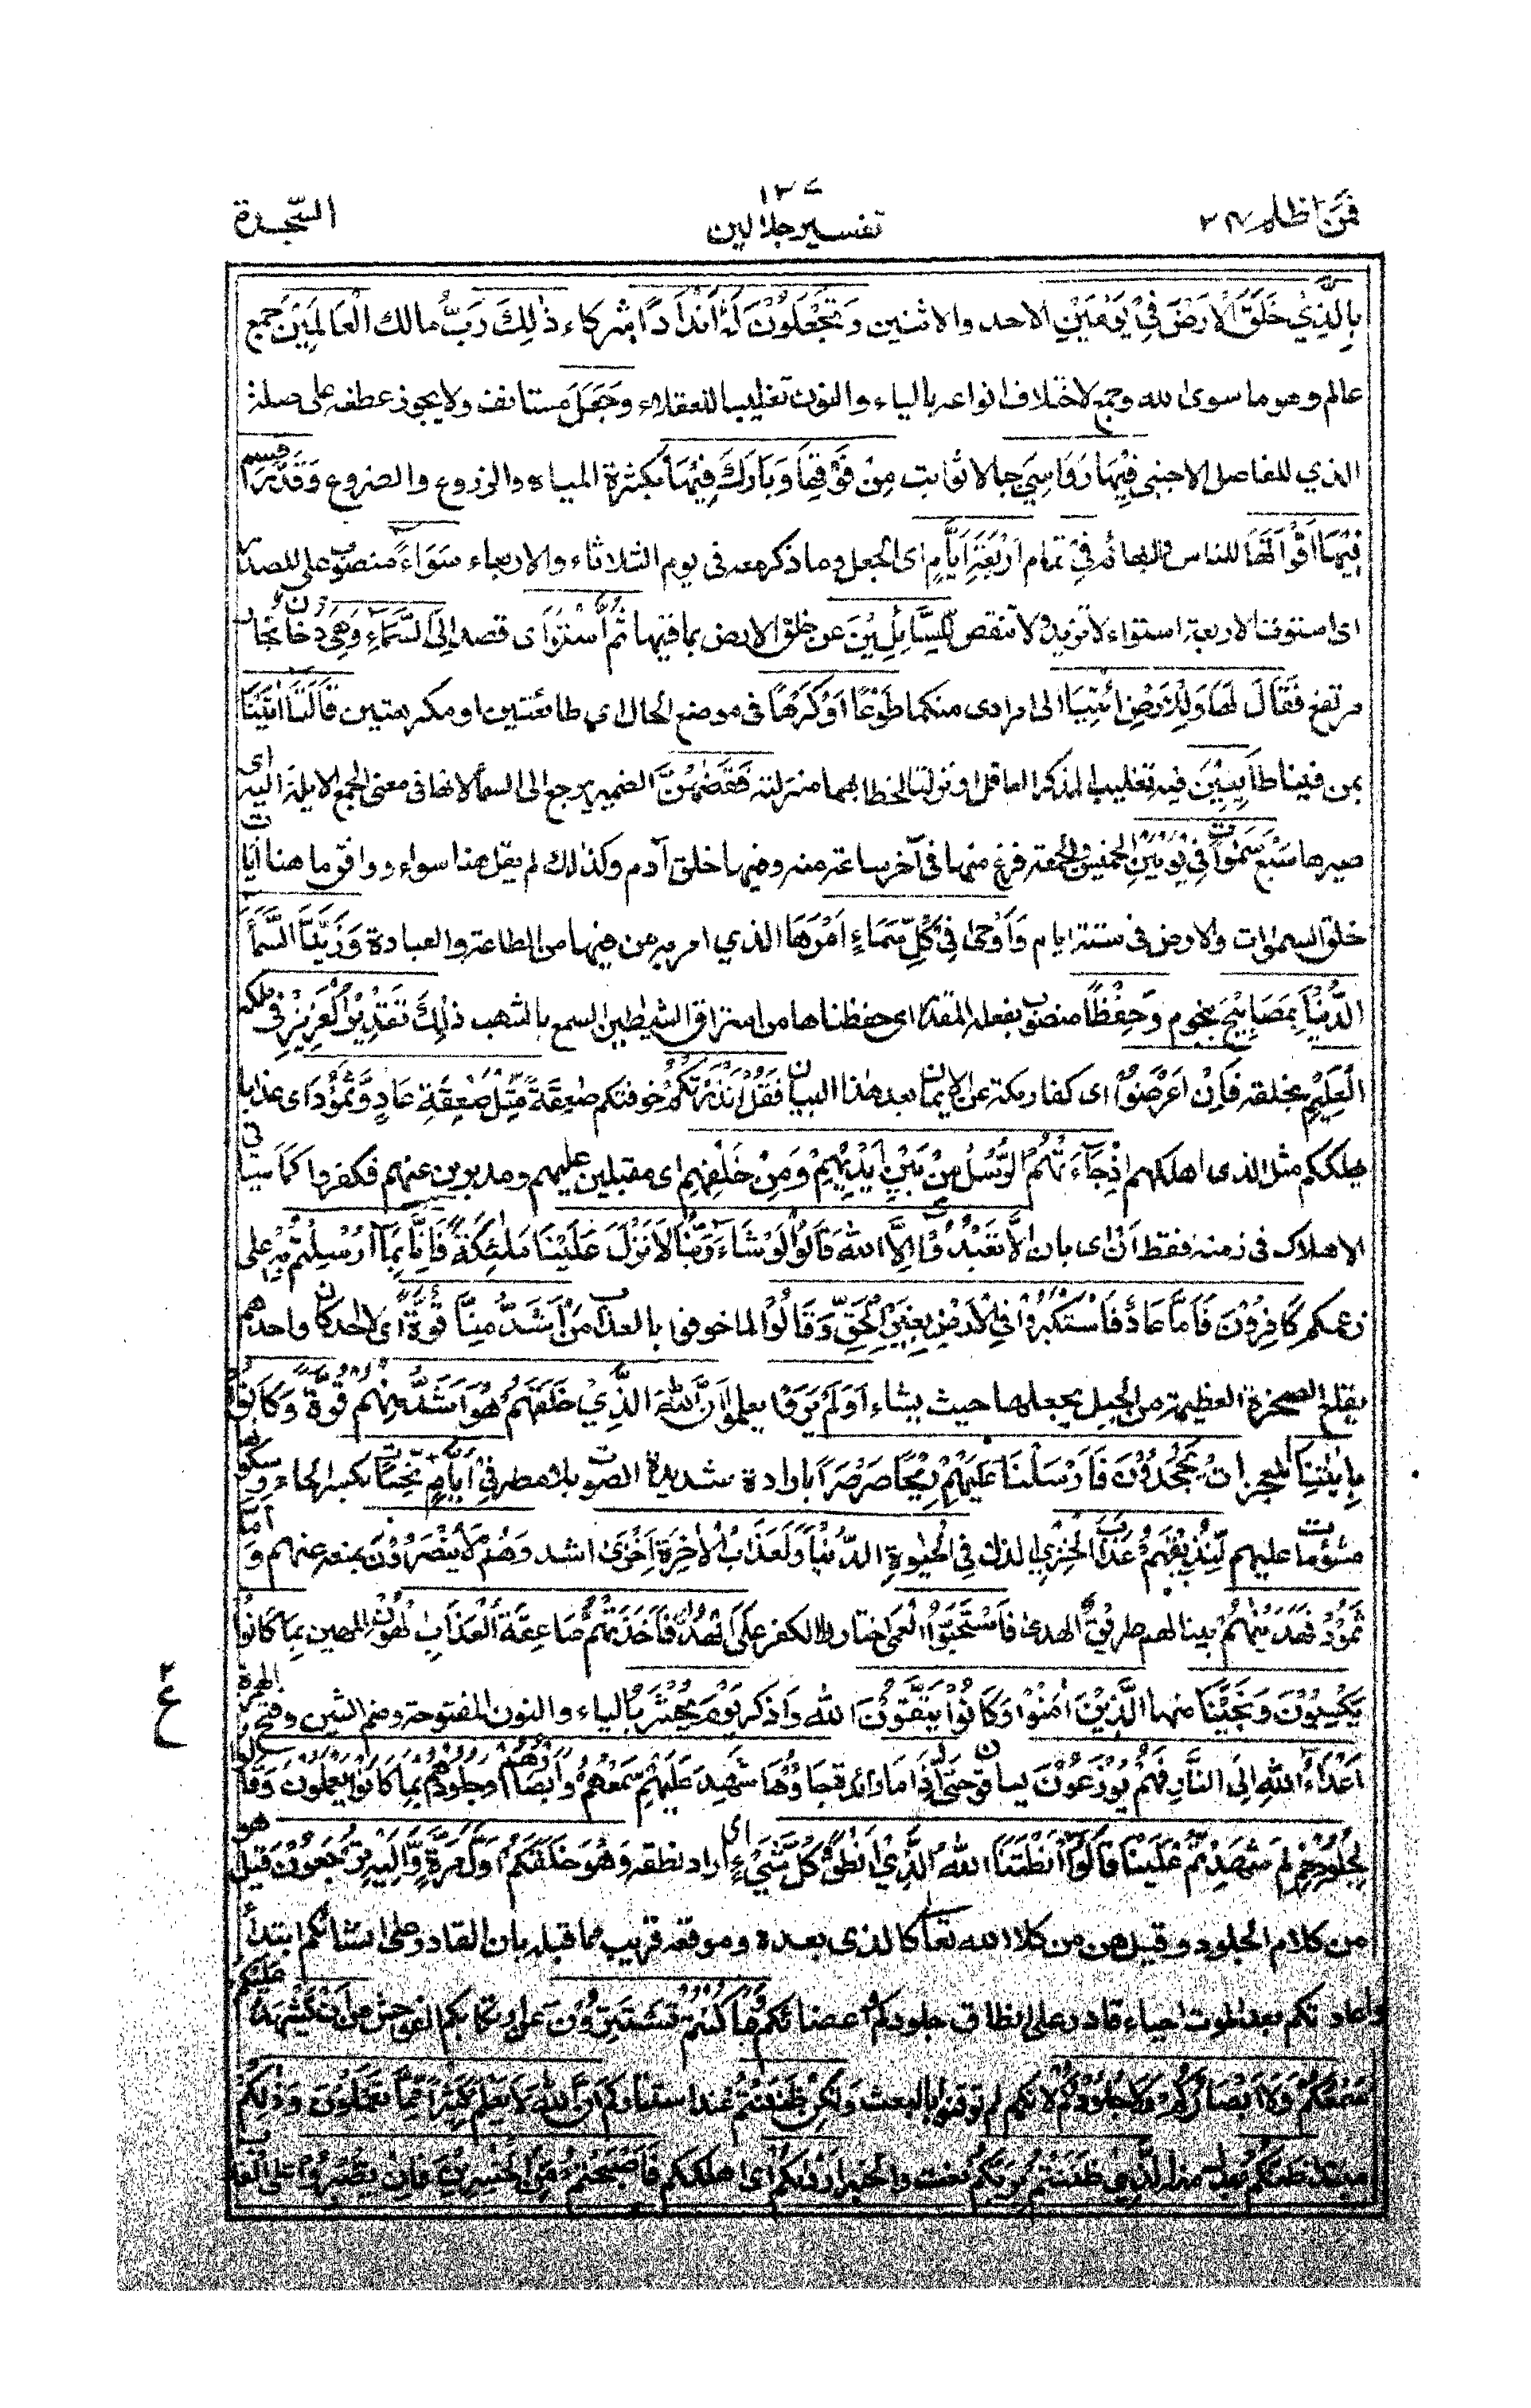 فمن اظلم ٢٤
١٣٤
تفسير جلالين
السّجدة
بِالَّذِيْ خَلَقَ الْاَرْضَ فِيْ يَوْمَيْنِ الاحد والاثنين وَتَجْعَلُوْنَ لَهٗ اَنْدَادًا شركاء ذٰلِكَ رَبُّ مالك الْعَالَمِيْنَ جمع
عالم وهو ما سوى الله وجمع لاختلاف انواعه بالياء والنون تغليبا للعقلاء وَجَعَلَ مستانف ولا يجوز عطفه على صلة
الذي للفاصل الاجنبى فِيْهَا رَوَاسِيَ جبالا ثوابت مِنْ فَوْقِهَا وَبَارَكَ فِيْهَا بكثرة المياه والزروع والضروع وَقَدَّرَ قسم
فِيْهَا اَقْوَاتَهَا للناس والبهائم فِيْ تمام اَرْبَعَةِ اَيَّامٍ اى الجعل وما ذكر معه فى يوم الثلاثاء والاربعاء سَوَاءً منصوب على المصدر
اى استوت الاربعة استواء لا تزيد ولا تنقص لِّلسَّائِلِيْنَ عن خلق الارض بما فيها ثُمَّ اسْتَوٰى قصد اِلَى السَّمَاءِ وَهِيَ دُخَانٌ بخار
مرتفع فَقَالَ لَهَا وَلِلْاَرْضِ ائْتِيَا الى مرادى منكما طَوْعًا اَوْ كَرْهًا فى موضع الحال اى طائعتين او مكرهتين قَالَتَا اَتَيْنَا
بمن فينا طَائِعِيْنَ فيه تغليب المذكر العاقل او نزلتا لخطابهما منزلته فَقَضٰهُنَّ الضمير يرجع الى السماء لانها فى معنى الجمع الايلة اليه اى
صيرها سَبْعَ سَمٰوَاتٍ فِيْ يَوْمَيْنِ الخميس والجمعة فرغ منها فى آخر ساعة منه وفيها خلق آدم وكذلك لم يقل هنا سواء ووافق ما هنا آيات
خلق السمٰوات والارض فى ستة ايام وَاَوْحٰى فِيْ كُلِّ سَمَاءٍ اَمْرَهَا الذي امر به من فيها من الطاعة والعبادة وَزَيَّنَّا السَّمَاءَ
الدُّنْيَا بِمَصَابِيْحَ بنجوم وَحِفْظًا منصوب بفعله المقدر اى حفظناها من استراق الشيطين السمع بالشهب ذٰلِكَ تَقْدِيْرُ الْعَزِيْزِ فى ملكه
الْعَلِيْمِ بخلقه فَاِنْ اَعْرَضُوْا اى كفار مكة عن الايمان بعد هذا البيان فَقُلْ اَنْذَرْتُكُمْ خوفتكم صٰعِقَةً مِّثْلَ صٰعِقَةِ عَادٍ وَّثَمُوْدَ اى عذابا
يهلككم مثل الذى اهلكهم اِذْ جَاءَتْهُمُ الرُّسُلُ مِنْ بَيْنِ اَيْدِيْهِمْ وَمِنْ خَلْفِهِمْ اى مقبلين عليهم ومدبرين عنهم فكفروا كما سياتى
الاهلاك فى زمنه فقط اَنْ اى بان لَّا تَعْبُدُوْا اِلَّا اللهَ قَالُوْا لَوْ شَاءَ رَبُّنَا لَاَنْزَلَ عَلَيْنَا مَلٰئِكَةً فَاِنَّا بِمَا اُرْسِلْتُمْ بِهٖ على
زعمكم كَافِرُوْنَ فَاَمَّا عَادٌ فَاسْتَكْبَرُوْا فِي الْاَرْضِ بِغَيْرِ الْحَقِّ وَقَالُوْا لما خوفوا بالعذاب مَنْ اَشَدُّ مِنَّا قُوَّةً اى لا احد كان واحدهم
يقلع الصخرة العظيمة من الجبل يجعلها حيث يشاء اَوَلَمْ يَرَوْا يعلموا اَنَّ اللهَ الَّذِيْ خَلَقَهُمْ هُوَ اَشَدُّ مِنْهُمْ قُوَّةً وَكَانُوْا
بِاٰيٰتِنَا المعجزات يَجْحَدُوْنَ فَاَرْسَلْنَا عَلَيْهِمْ رِيْحًا صَرْصَرًا باردة شديدة الصوت بلا مطر فِيْ اَيَّامٍ نَّحِسَاتٍ بكسر الحاء وسكونها
مشؤمات عليهم لِّنُذِيْقَهُمْ عَذَابَ الْخِزْيِ الذل فِي الْحَيٰوةِ الدُّنْيَا وَلَعَذَابُ الْاٰخِرَةِ اَخْزٰى اشد وَهُمْ لَا يُنْصَرُوْنَ بمنعه عنهم وَاَمَّا
ثَمُوْدُ فَهَدَيْنٰهُمْ بينا لهم طريق الهدى فَاسْتَحَبُّوا الْعَمٰى اختاروا الكفر عَلَى الْهُدٰى فَاَخَذَتْهُمْ صَاعِقَةُ الْعَذَابِ الْهُوْنِ المهين بِمَا كَانُوْا
يَكْسِبُوْنَ وَنَجَّيْنَا منها الَّذِيْنَ اٰمَنُوْا وَكَانُوْا يَتَّقُوْنَ الله وَاذكر يَوْمَ يُحْشَرُ بالياء والنون المفتوحة وضم الشين وفتح الهمزة
اَعْدَاءُ اللهِ اِلَى النَّارِ فَهُمْ يُوْزَعُوْنَ يساقون حَتّٰى اِذَا مَا زائدة جَاءُوْهَا شَهِدَ عَلَيْهِمْ سَمْعُهُمْ وَاَبْصَارُهُمْ وَجُلُوْدُهُمْ بِمَا كَانُوْا يَعْمَلُوْنَ وَقَالُوْا
لِجُلُوْدِهِمْ لِمَ شَهِدْتُّمْ عَلَيْنَا قَالُوْا اَنْطَقَنَا اللهُ الَّذِيْ اَنْطَقَ كُلَّ شَيْءٍ اى اراد نطقه وَهُوَ خَلَقَكُمْ اَوَّلَ مَرَّةٍ وَّاِلَيْهِ تُرْجَعُوْنَ قيل هو
من كلام الجلود وقيل هن من كلام الله تعالى كالذى بعده وموقعه قريب مما قبله بان القادر على انشائكم ابتداء
واعادتكم بعد الموت احياء قادر على انطاق جلودكم واعضائكم وَمَا كُنْتُمْ تَسْتَتِرُوْنَ عن ارتكابكم الفواحش من اَنْ يَّشْهَدَ عَلَيْكُمْ
سَمْعُكُمْ وَلَا اَبْصَارُكُمْ وَلَا جُلُوْدُكُمْ لانكم لم توقنوا بالبعث وَلٰكِنْ ظَنَنْتُمْ عند استتاركم اَنَّ اللهَ لَا يَعْلَمُ كَثِيْرًا مِّمَّا تَعْمَلُوْنَ وَذٰلِكُمْ
مبتدا ظَنُّكُمُ بدل منه الَّذِيْ ظَنَنْتُمْ بِرَبِّكُمْ نعت والخبر اَرْدٰىكُمْ اى اهلككم فَاَصْبَحْتُمْ مِّنَ الْخٰسِرِيْنَ فَاِنْ يَّصْبِرُوْا على العذاب
ع
٢